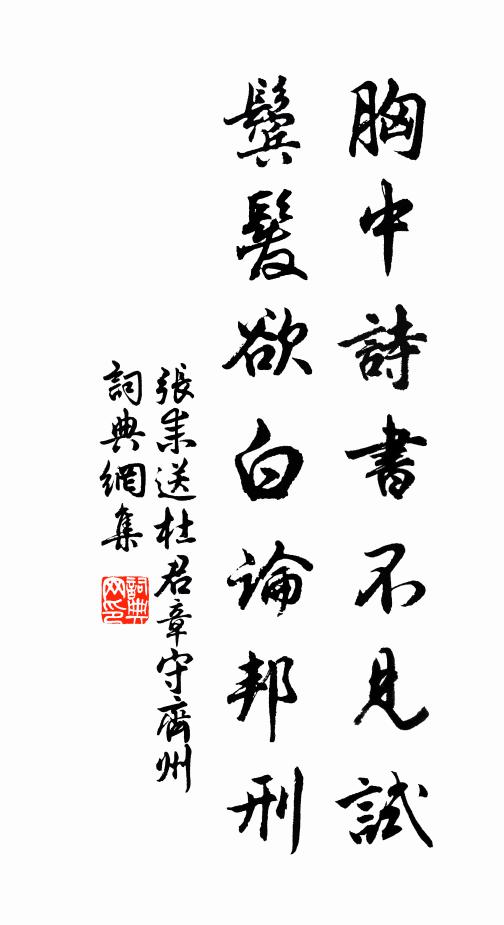 胸中詩書不見試
鬢髮欲白論邦刑
張耒送杜君章守齊州
詞典網集
詞典網印